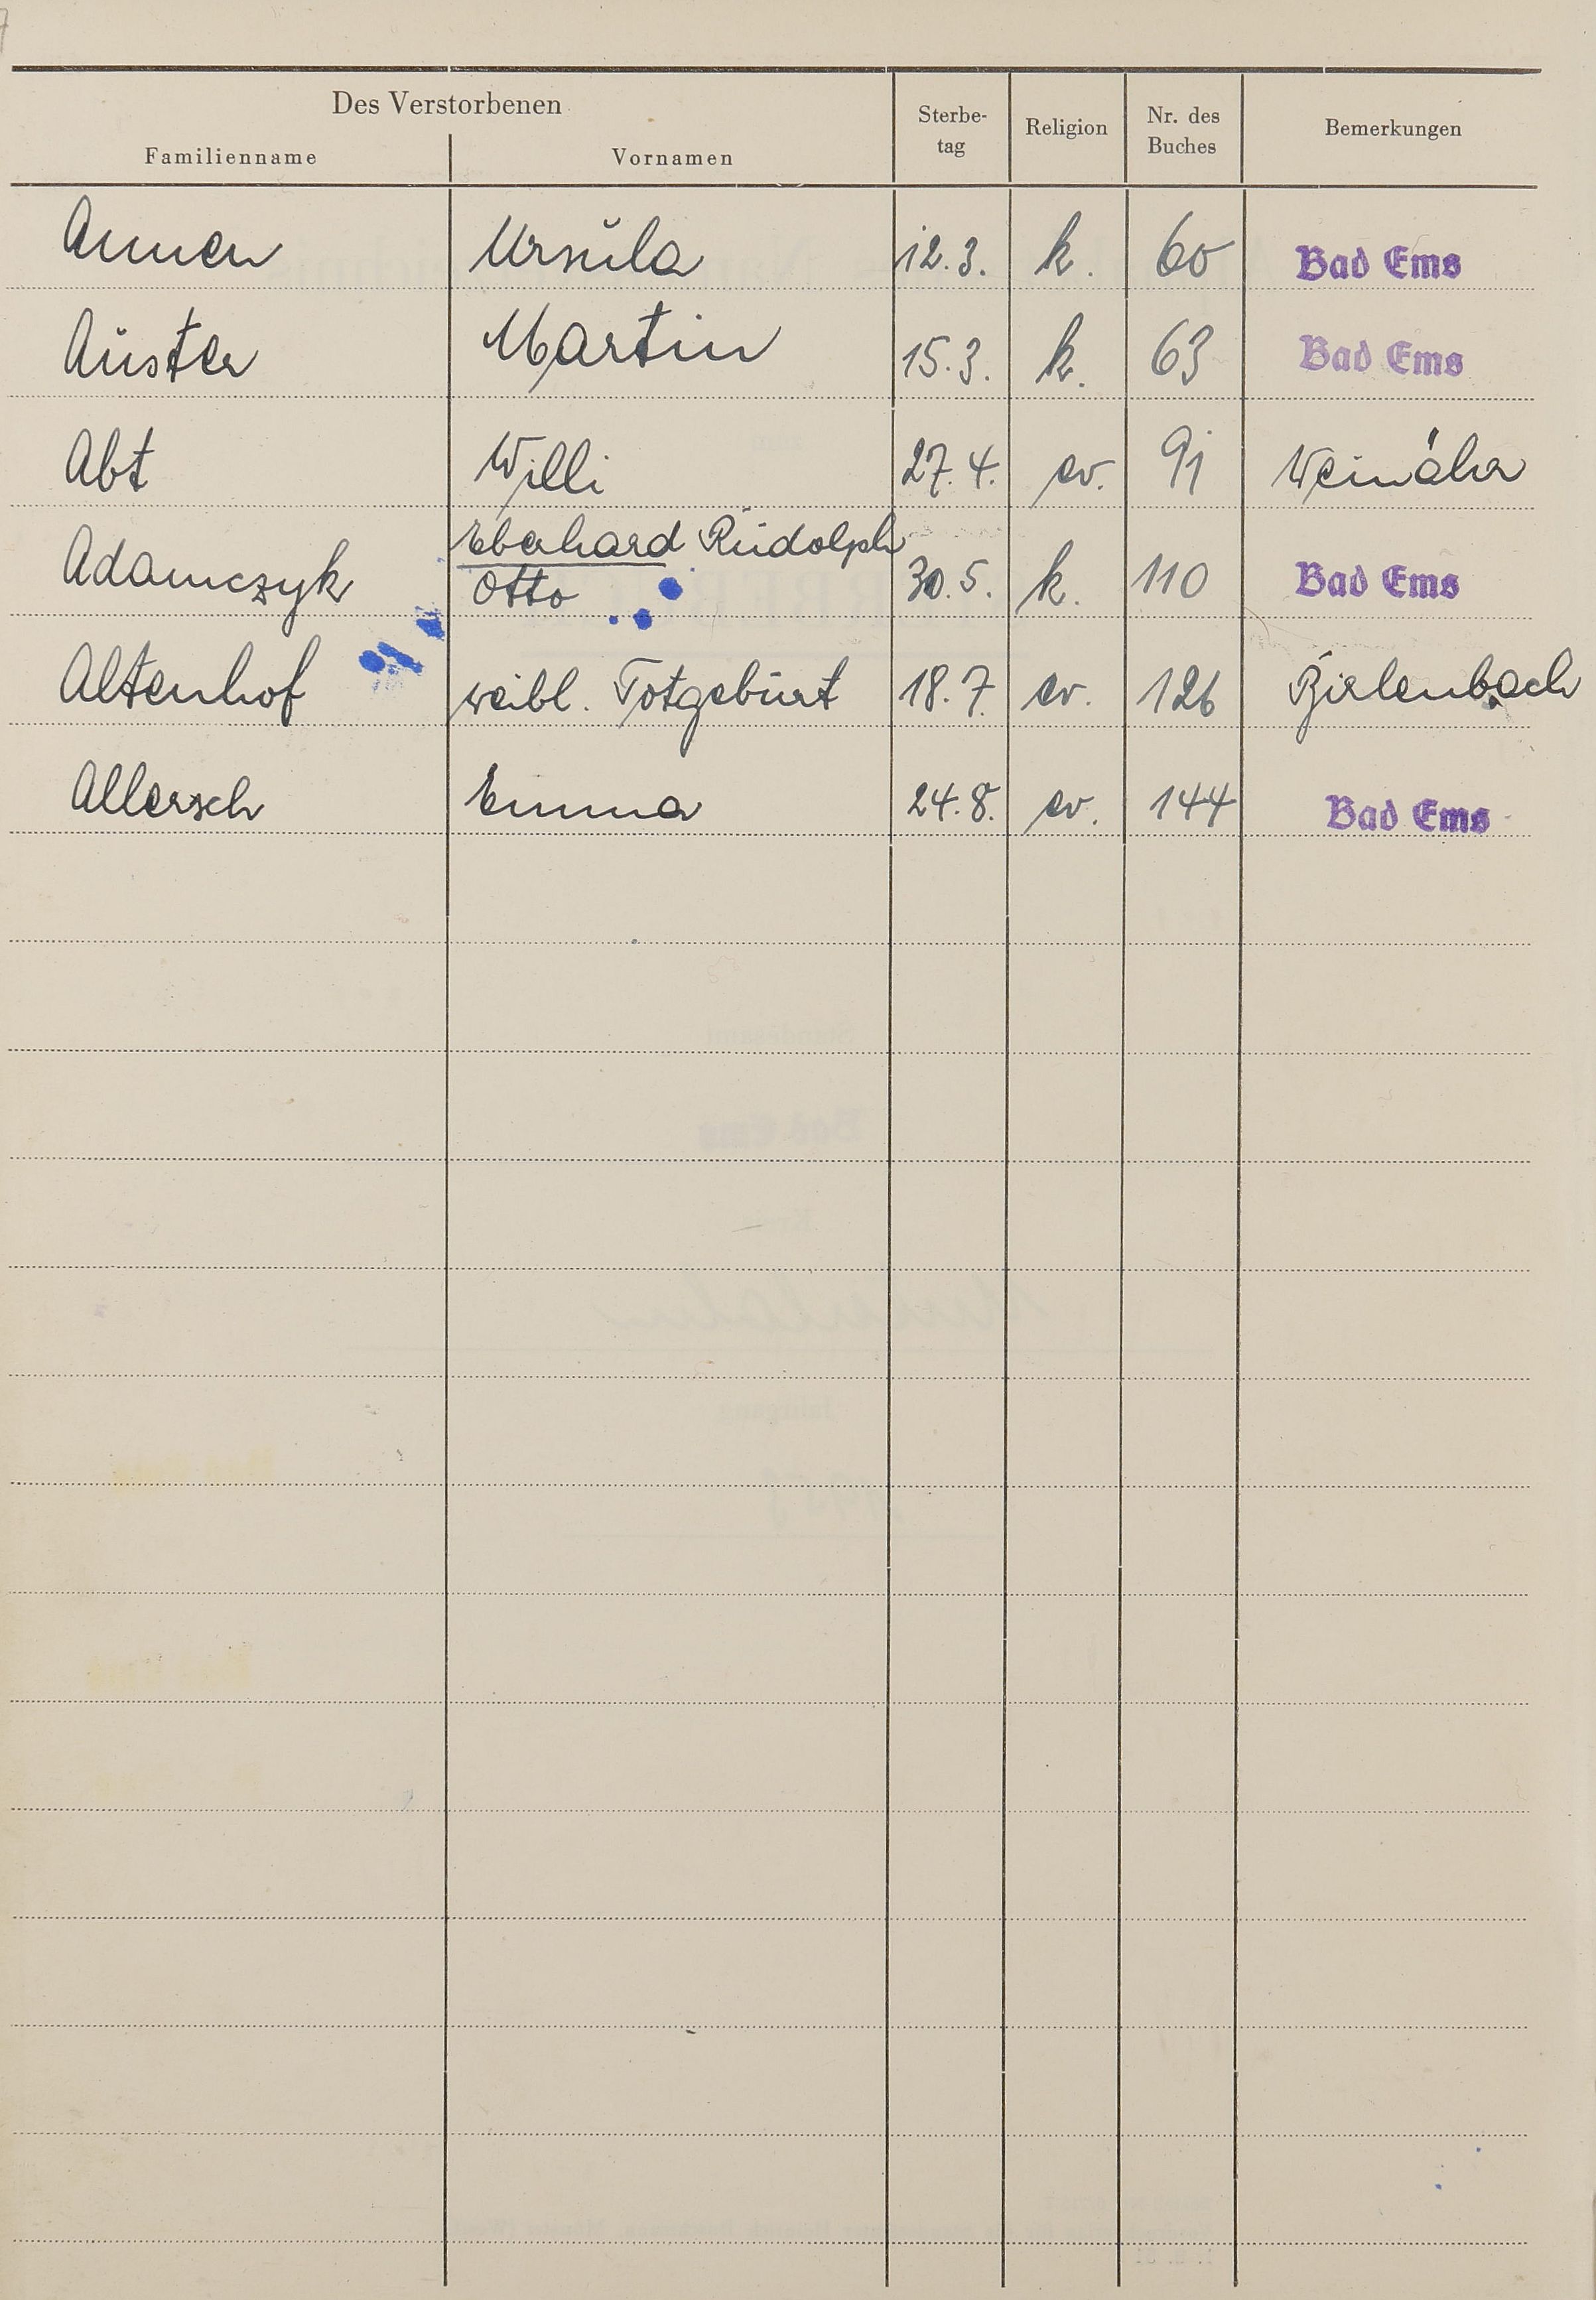 Des Verstorbenen
Familienname Vornamen Sterbe-tag Religion Nr. des Buches Bemerkungen
Annen Ursula 12.3. k. 60 Bad Ems
Auster Martin 15.3. k. 63 Bad Ems
Abt Willi 27.4. ev. 91 Weinähr
Adamczyk Eberhard Rudolph Otto 30.5. k. 110 Bad Ems
Altenhof weibl. Totgeburt 18.7. ev. 126 Birlenbach
Allersch Emma 24.8. ev. 144 Bad Ems